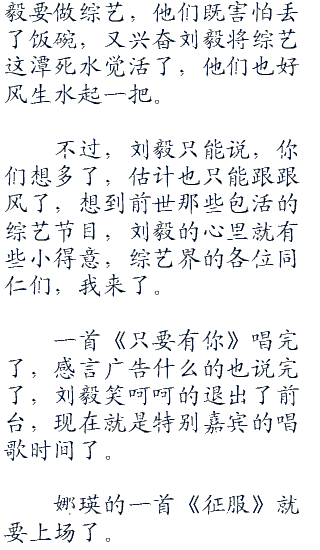 毅要做综艺，他们既害怕丢
了饭碗，又兴奋刘毅将综艺
这潭死水觉活了，他们也好
风生水起一把。
不过，刘毅只能说，你
们想多了，估计也只能跟跟
风了，想到前世那些包活的
综艺节目，刘毅的心里就有
些小得意，综艺界的各位同
仁们，我来了。
一首《只要有你》唱完
了，感言广告什么的也说完
了，刘毅笑呵呵的退出了前
台，现在就是特别嘉宾的唱
歌时间了。
娜瑛的一首《征服》就
要上场了。